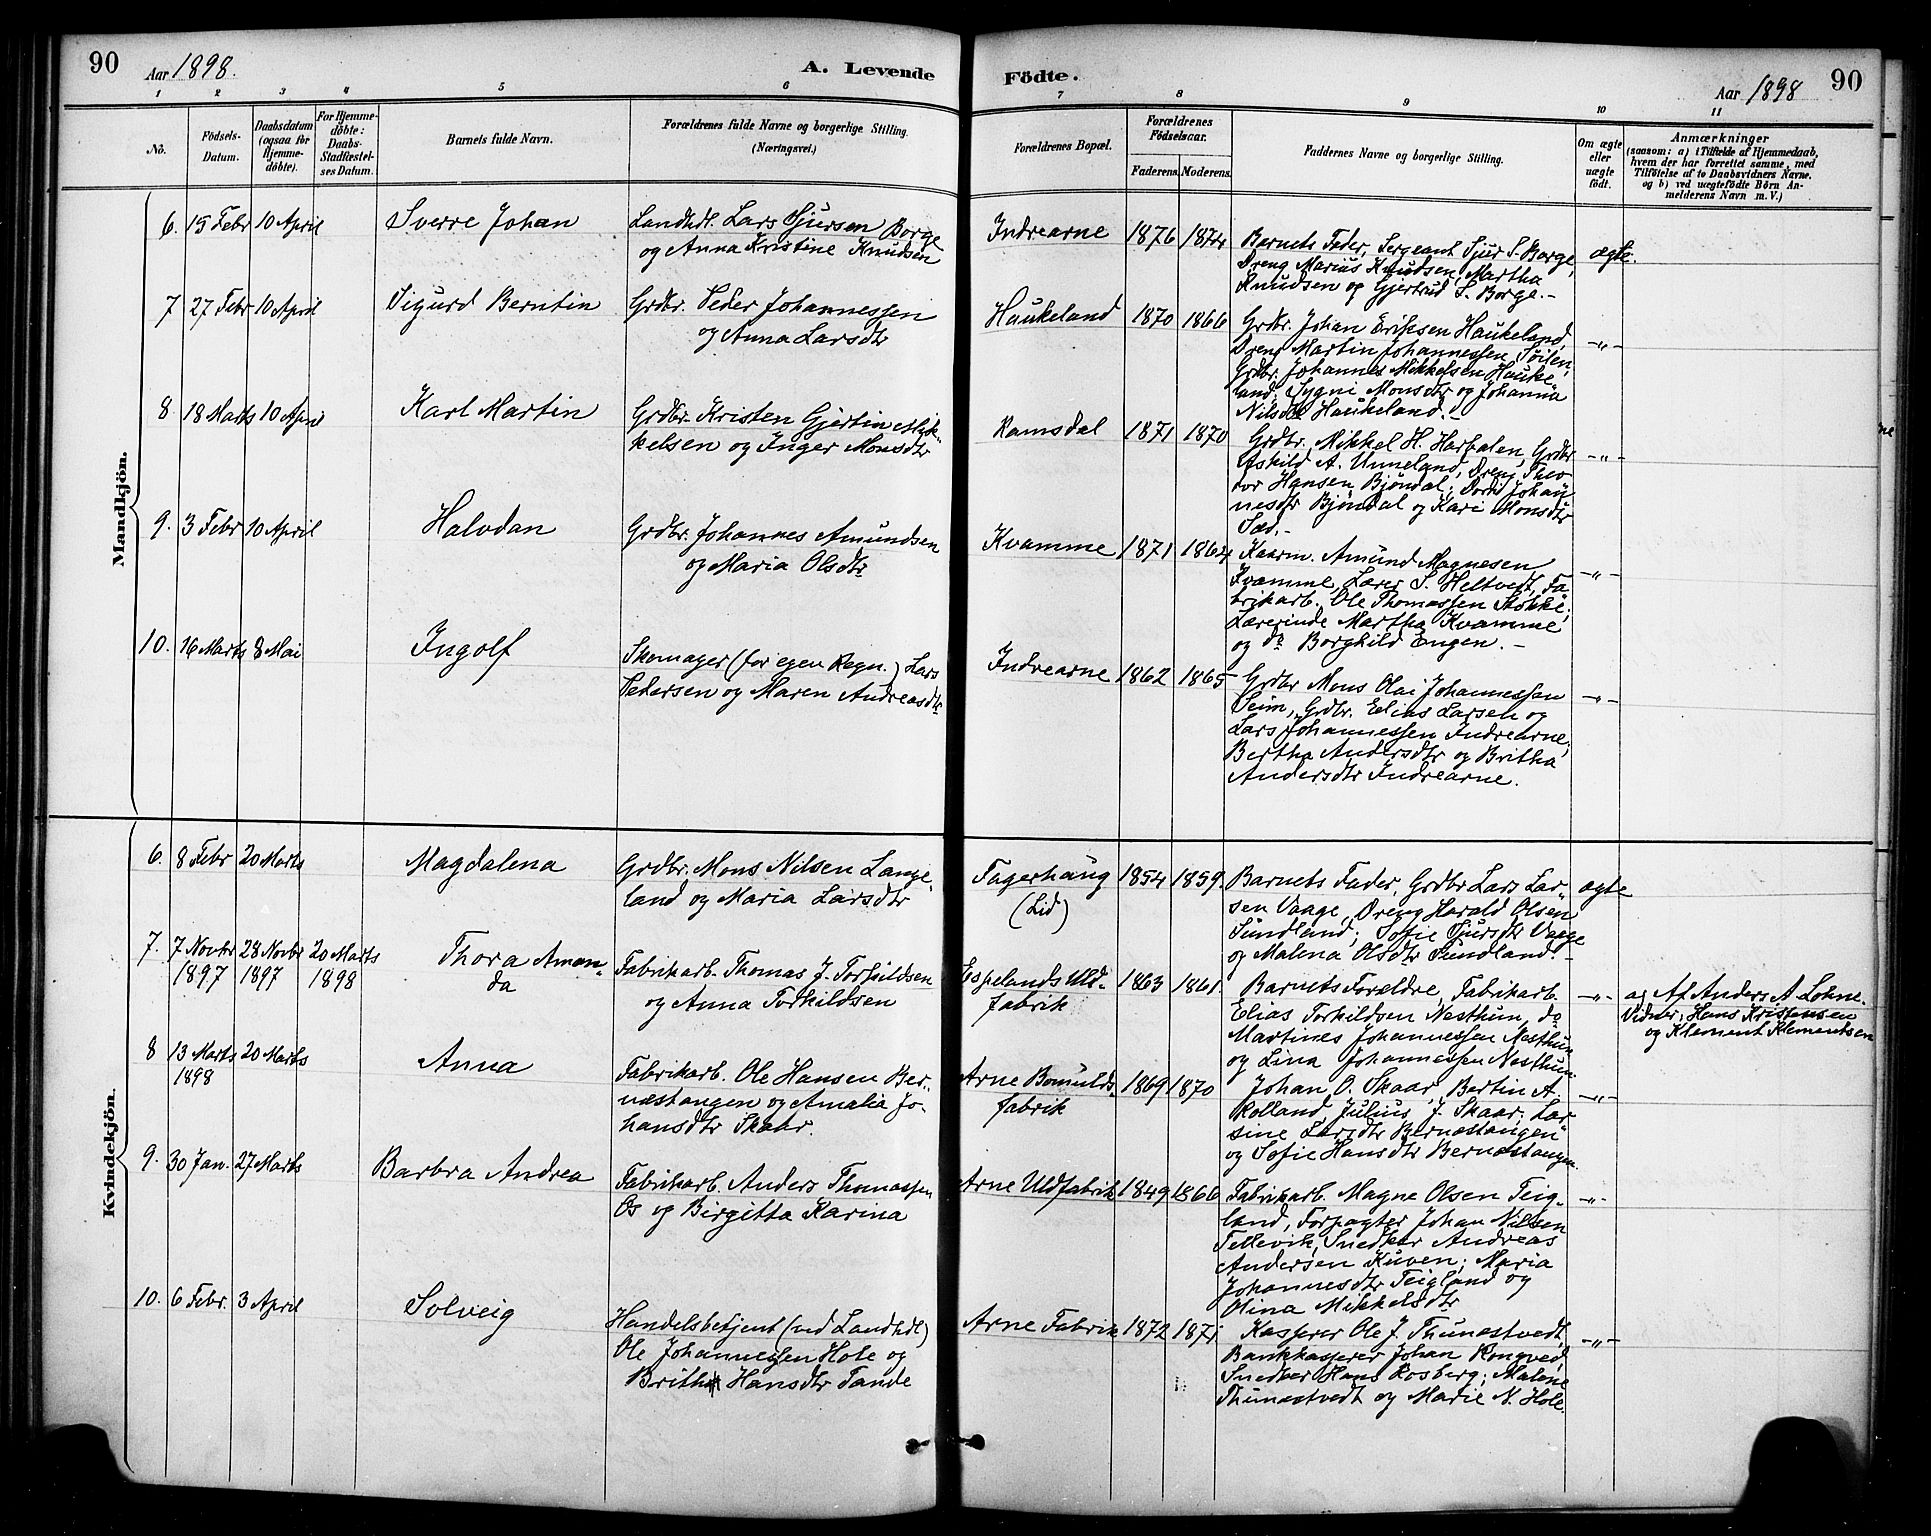 90 Aar 1898. A. Levende Födte. Aar 1898 90
1 2 3 4 5 6 7 8 9 10 11
No.
Födsels-
Datum.
Daabsdatum
(ogsaa for
Hjemme-
döbte).
For Hjemme-
döbte:
Daabs-
Stadfæstel-
ses Datum.
Barnets fulde Navn.
Forældrenes fulde Navne og borgerlige Stilling.
(Næringsvei.)
Forældrenes Bopæl.
Forældrenes
Födselsaar.
Faderens. Moderens.
Faddernes Navne og borgerlige Stilling.
Om ægte
eller
uægte
födt.
Anmærkninger
(saasom: a) i Tilfælde af Hjemmedaab,
hvem der har forrettet samme, med
Tilföielse af to Daabsvidners Navne,
og b) ved uægtefödte Börn An-
melderens Navn m. V.)
Mandkjön.
6. 15 Febr 10 April
Sverre Johan
Landhdl. Lars Sjursen Borge
og Anna Kristine Knudsen
Indrearne
1876 1874
Barnets Fader, Sergeant Sjur S. Borge,
Dreng Marius Knudsen, Martha
Knudsen og Gjertrud S. Borge.-
ægte.
7 27 Febr 10 April
Sigurd Berntin
Grdbr. Peder Johannessen
og Anna Larsdtr
Haukeland
1870 1866
Grdbr. Johan Eriksen Haukeland,
Dreng Martin Johannessen Söilen,
Grdbr. Johannes Mikkelsen Hauke-
land; Sygni Monsdtr og Johanna
Nilsdtr Haukeland.-
-"-
8 18 Marts 10 April
Karl Martin
Grdbr. Kristen Gjertin Mik-
kelsen og Inger Monsdtr
Ramsdal
1871 1870
Grdbr. Mikkel H. Harbalen, Grdbr
Askild A. Unneland, Dreng Theo-
dor Hansen Bjöndal; Dorti Johan
nesdtr Bjöndal og Kari Monsdtr
Sæd.-
-"-
9. 3 Febr 10 April
Halvdan
Grdbr. Johannes Amundsen
og Maria Olsdtr
Kvamme
1871 1864
Kaarm. Amund Magnesen
Kvamme, Lærer S. Heltvedt, Fa-
brikarb. Ole Thomassen Stokke;
Lærerinde Martha Kvamme
og do Borghild Engen.-
-"-
10. 16 Marts 8 Mai
Ingolf
Skomager (for egen Regn.) Lars
Pedersen og Maren Andreasdtr
Indrearne
1862 1865
Grdbr Mons Olai Johannessen
Seim, Grdbr. Elias Larsen og
Lars Johannessen Indrearne;
Bertha Andersdtr og Britha
Andersdtr Indrearne.
-"-
Kvindekjön.
6. 8 Febr 20 Marts
Magdalena
Grdbr. Mons Nilsen Lange-
land og Maria Larsdtr
Fagerhaug
(Lid)
1854 1859.
Barnets Fader, Grdbr Lars Lar-
sen Vaage, Dreng Harald Olsen
Sundland; Sofie Sjursdtr Vaage
og Malena Olsdtr Sundland.-
ægte
7. 7 Novbr 28 Novbr 20 Marts
1897 1897 1898
Thora Aman-
da
Fabrikarb. Thomas J. Torkildsen
og Anna Torkildsen
Espelands Uld-
fabrik
1863 1861.
Barnets Foreldre, Fabrikarb.
Elias Torkildsen Nesthun, do
Martines Johannessen Nesthun
og Lina Johannessen Nesthun
-"-
ag Af Anders A Lohne.
Vidner, Hans Kristensen
og Klement Klementsen
8 13 Marts 20 Marts
1898
Anna
Fabrikarb. Ole Hansen Ber-
næstangen og Amalia Jo-
hansdtr Skaar.
Arne Bomulds-
fabrik
1869 1870
Johan O. Skaar, Bertin A
Rolland, Julius J. Skaar; Lar-
sine Larsdtr Bernæstangen
og Sofie Hansdtr Bernæstangen
-"-
9. 30 Jan. 27 Marts
Barbra Andrea
Fabrikarb. Anders Thomassen
Os og Birgitta Karina
Arne Uldfabrik
1849 1866
Fabrikarb. Magne Olsen Teig-
land, Forpagter Johan Nilsen
Tellevik, Snedker Andreas
Andersen Kuven; Maria
Johannesdtr Teigland og
Olina Mikkelsdtr
-"-
10. 6 Febr. 3 April
Solveig
Handelsbetjent (ved Landhdl)
Ole Johannessen Hole og
Britha Hansdtr Tande
Arne Fabrik
1872 1871
Kasserer Ole J. Thunestvedt,
Bankkasserer Johan Rongved,
Snedker Hans Rosberg; Malene
Thunestvedt og Marie N. Hole.
-"-